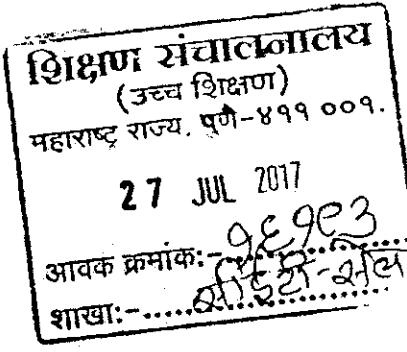 शिक्षण संचालनालय
(उच्च शिक्षण)
महाराष्ट्र राज्य, पुणे-४११ ००१.
27 JUL 2017
आवक क्रमांक:- १६१९३
शाखा:-